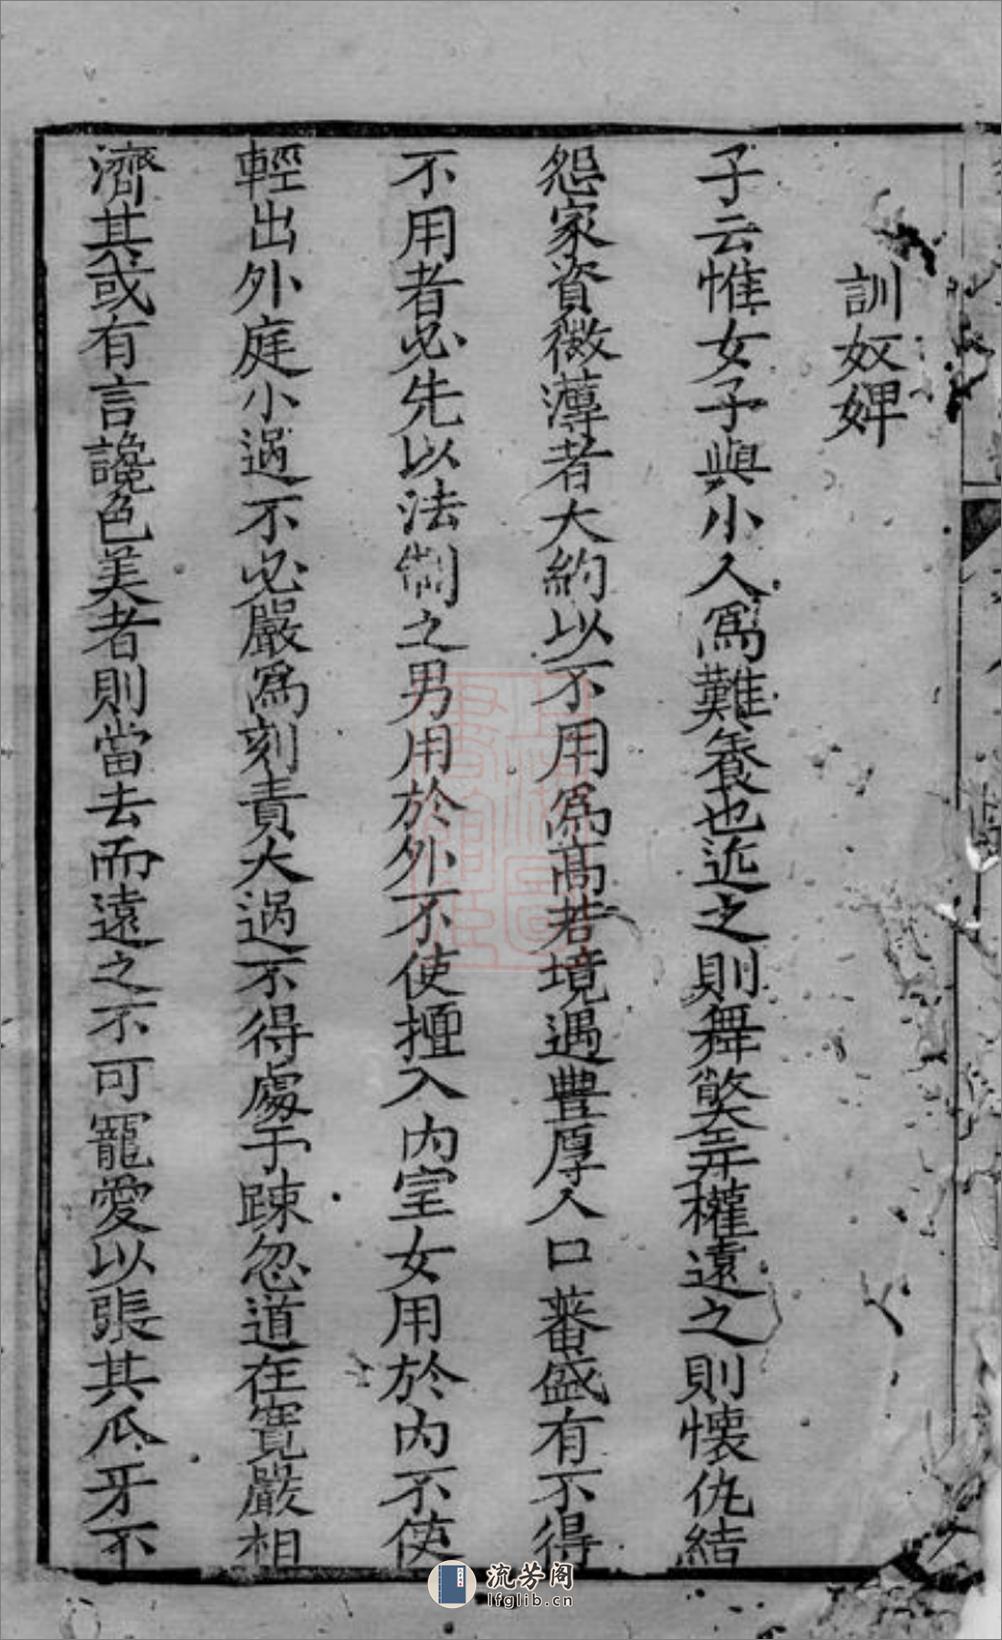 訓奴婢
子云惟女子與小人為難養也近之則舞獘弄權遠之則懷仇結
怨家資微薄者大約以不用為高若境遇豐厚人口蕃盛有不得
不用者必先以法制之男用於外不使擅入內室女用於內不使
輕出外庭小過不必嚴為刻責大過不得處于踈忽道在寬嚴相
濟其或有言讒色美者則當去而遠之不可寵愛以張其爪牙不
流芳阁
lfglib.cn